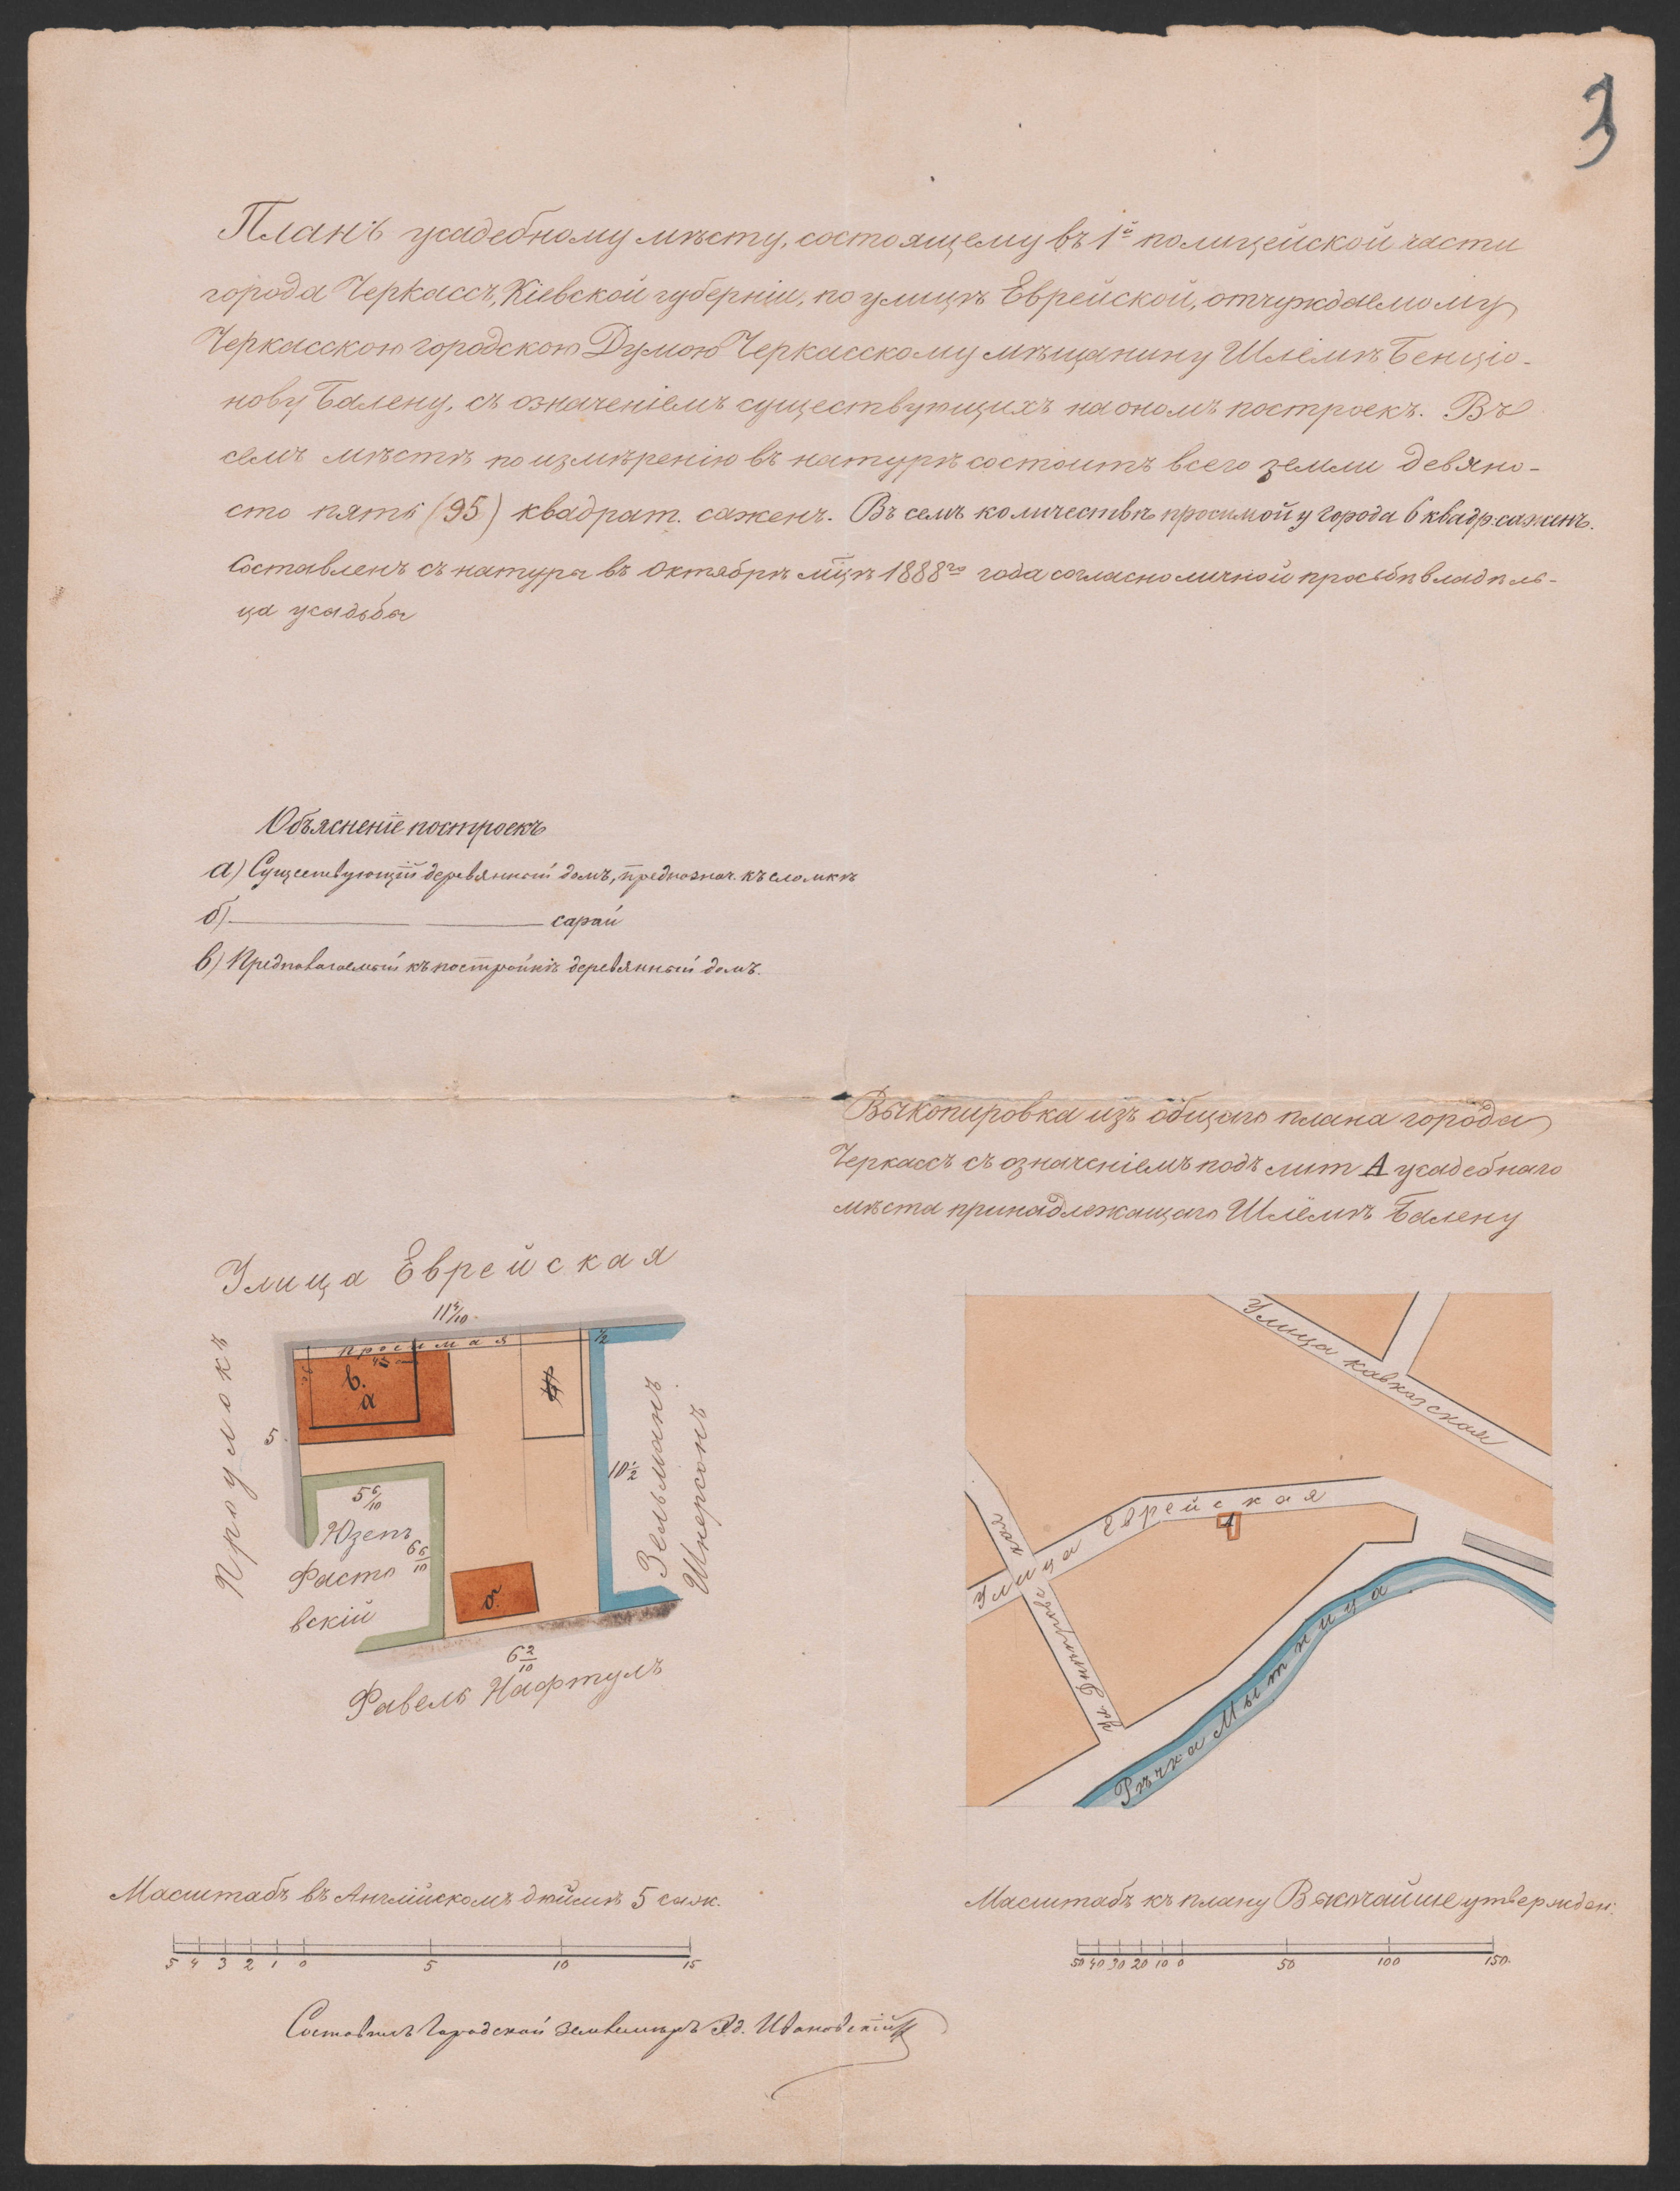 3
Планъ усадебному мѣсту, состоящему въ 1й полицейской части
города Черкассъ, Кіевской губерніи, по улицѣ Еврейской, отчуждаемому
Черкасскою городскою Думою Черкасскому мѣщанину Шлемѣ Бенціо-
нову Балену, съ означеніемъ существующихъ на ономъ построекъ. Въ
семъ мѣстѣ по измѣренію въ натурѣ состоитъ всего земли девяно-
сто пять (95) квадрат. саженъ. Въ семъ количествѣ просимой у города 6 квадр. сажень.
Составленъ съ натуры въ Октябрѣ мцѣ 1888го года согласно личной просьбѣ владѣль-
ца усадьбы
Объясненіе построекъ
а) Существующій деревянный домъ, предназнач. къ сломкѣ
б) — — сарай
в) Предпологаемый къ постройкѣ деревянный домъ.
Выкопировка изъ общаго плана города
Черкассъ съ означеніемъ подъ лит А усадебнаго
мѣста принадлежащаго Шлёмѣ Балену
Улица Еврейская
11 4/10
просимая
1/2
в.
а
5
Проулокъ
10 1/2
Зельманъ
Шнерсонъ
5 6/10
Юзепъ
Фасто
вскій
6 6/10
б.
6 2/10
Фавель Нафтулъ
Улица кавказская
Улица Еврейская
А
Рѣчка Мытница
Масштабъ въ Англійскомъ дюймѣ 5 саж.
5 4 3 2 1 0 5 10 15
Масштабъ къ плану Высочайше утвержден:
50 40 30 20 10 0 50 100 150
Составилъ Городской Землемѣръ Эд. Ивановскій